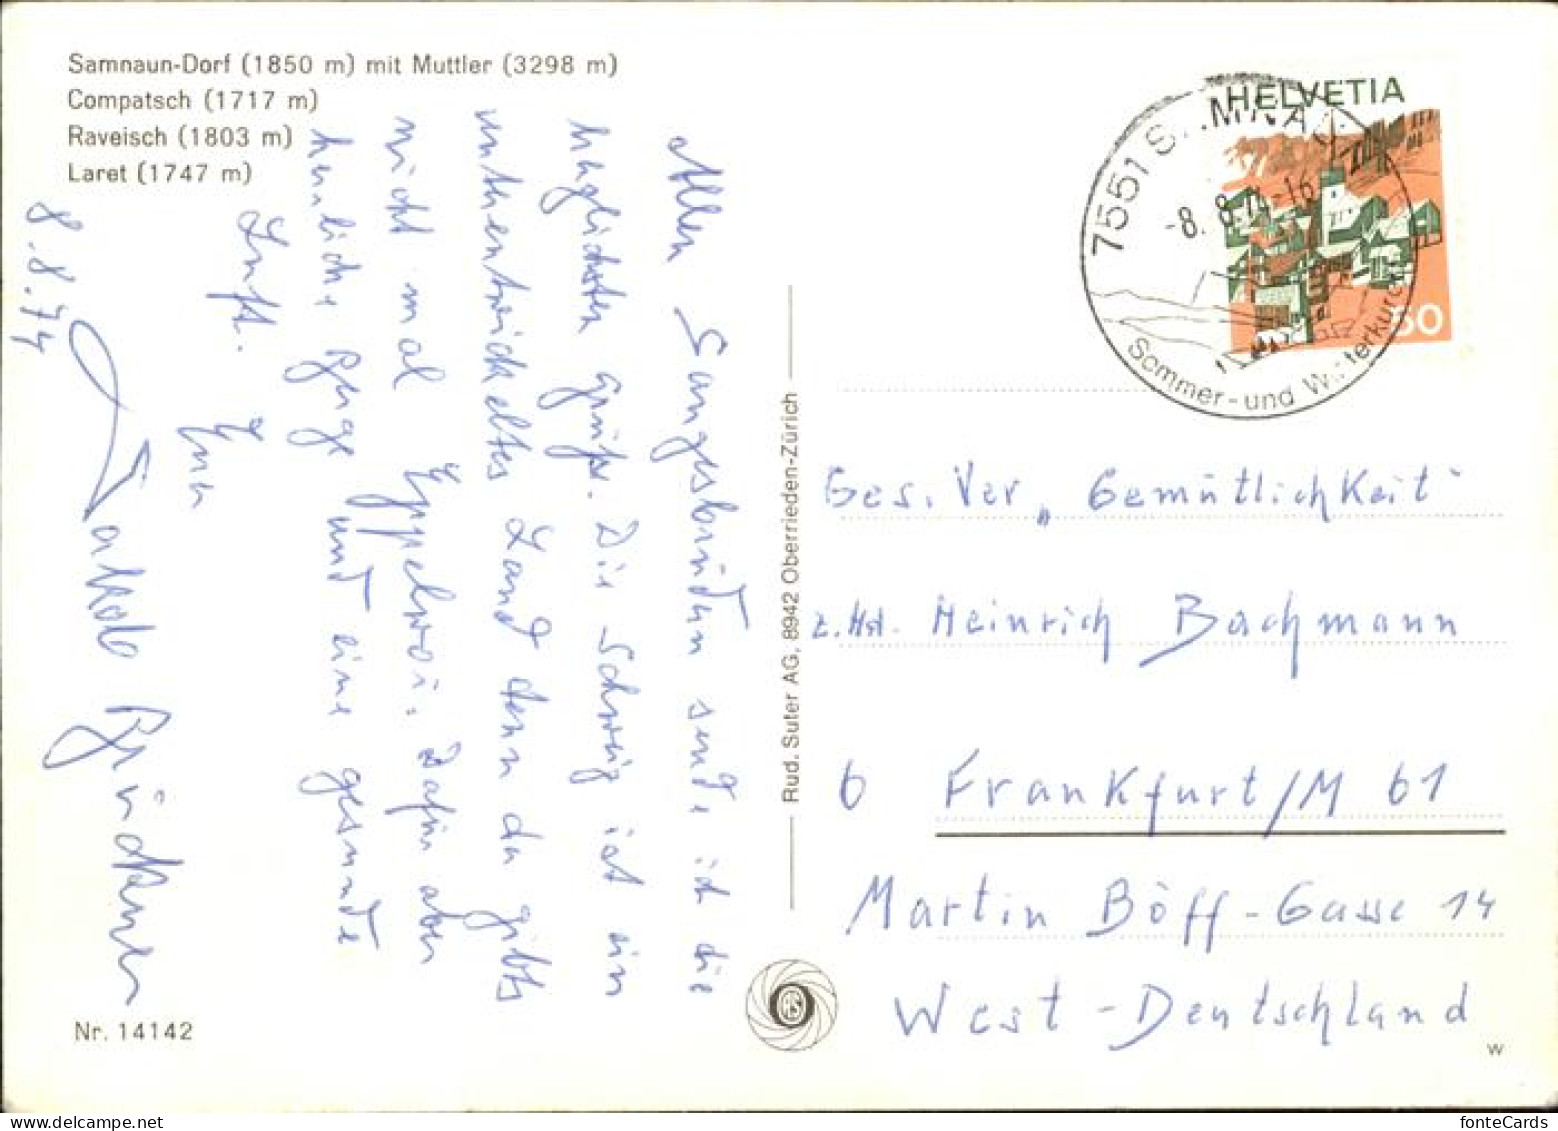 Samnaun-Dorf (1850 m) mit Muttler (3298 m)
Compatsch (1717 m)
Raveisch (1803 m)
Laret (1747 m)
8.8.74
Allen Sangesbrüdern sende ich die
herzlichsten Grüße. Die Schweiz ist ein
unterentwickeltes Land denn da gibts
nicht mal Eppelwoi. Dafür aber
herrliche Berge und eine gesunde
Luft.
Euer
Jakob Brückner
Nr. 14142
Rud. Suter AG, 8942 Oberrieden-Zürich
RS
HELVETIA
80
7551 S
-8. 8.74-16
Sommer-und Winterkurort
Ges. Ver „Gemütlichkeit"
z. Hd. Heinrich Bachmann
6 Frankfurt/M 61
Martin Böff-Gasse 14
West-Deutschland
W
fonteCards